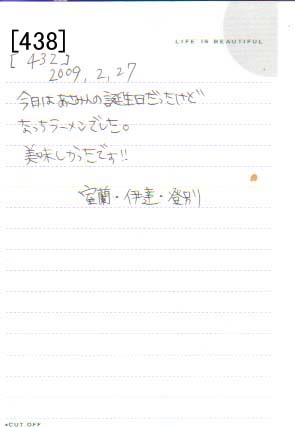 [438]
LIFE IS BEAUTIFUL
[432]
2009,2,27
今日はあさみんの誕生日だったけど
なっちラーメンでした。
美味しかったです!!
室蘭・伊達・登別
CUT OFF